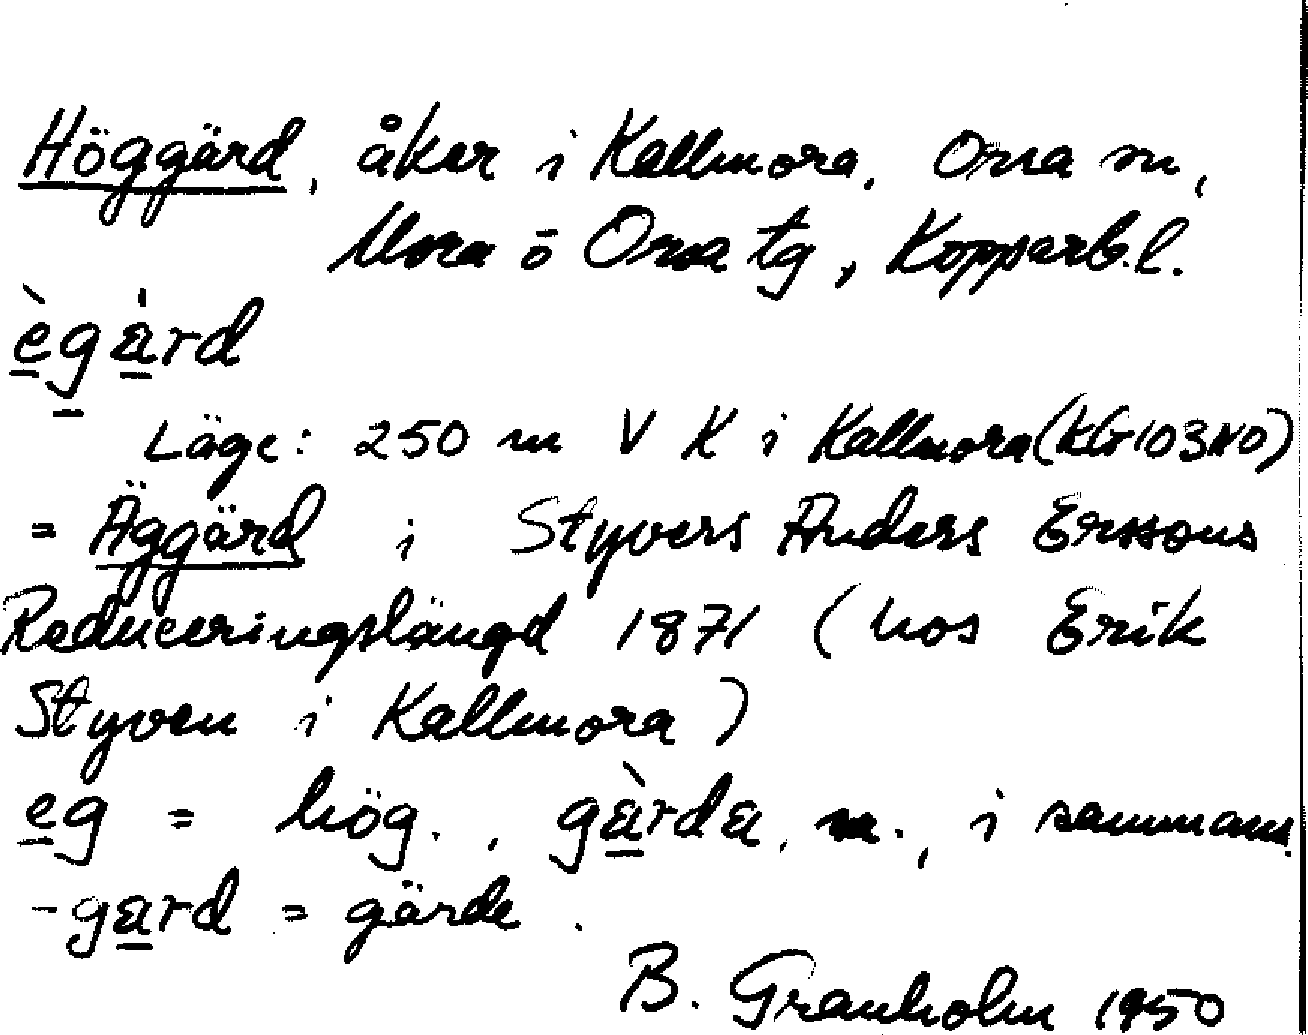 Höggärd, åker i Kallmora, Orsa sn,
Mora o Orsa tg, Kopparb.l.
ègàrd
Läge: 250 m V K i Kallmora (KG 103 NO)
= Äggärd i Styvers Anders Erssons
Reduceringslängd 1871 (hos Erik
Styven i Kallmora)
eg = hög. , gàrda, n., i sammans.
-gard = gärde.
B. Granholm 1950